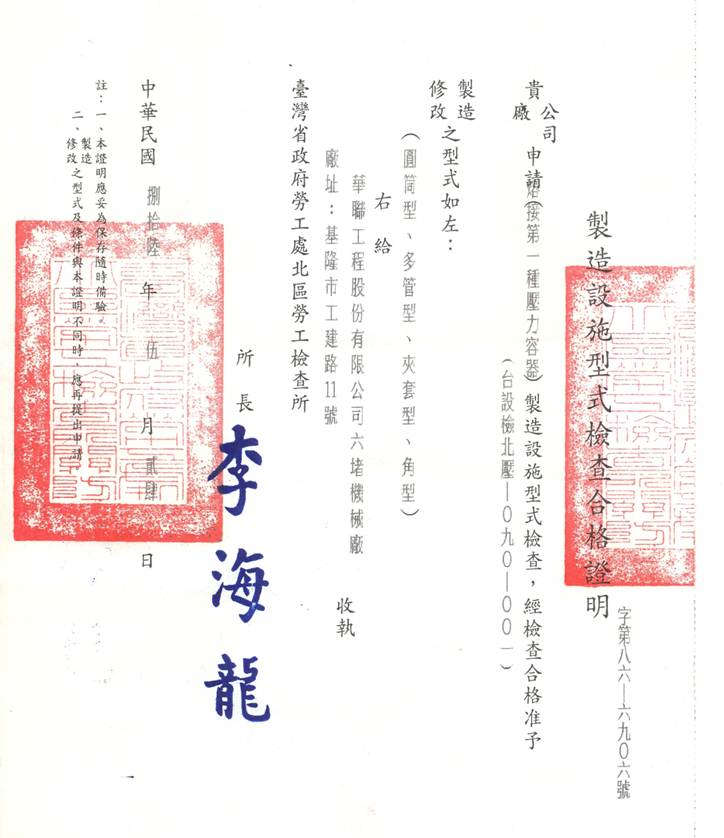 製造設施型式檢查合格證明
字第八六—六九０六號
貴公司廠申請(熔接第一種壓力容器)製造設施型式檢查，經檢查合格准予
(台設檢北壓—０九０—００一)
製造修改之型式如左：
(圓筒型、多管型、夾套型、角型)
右給
華聯工程股份有限公司六堵機械廠
廠址：基隆市工建路11號
收執
臺灣省政府勞工處北區勞工檢查所
所長 李海龍
中華民國 捌拾陸 年 伍 月 貳肆 日
註：一、本證明應妥為保存隨時備驗。
二、製造修改之型式及條件與本證明不同時，應再提出申請